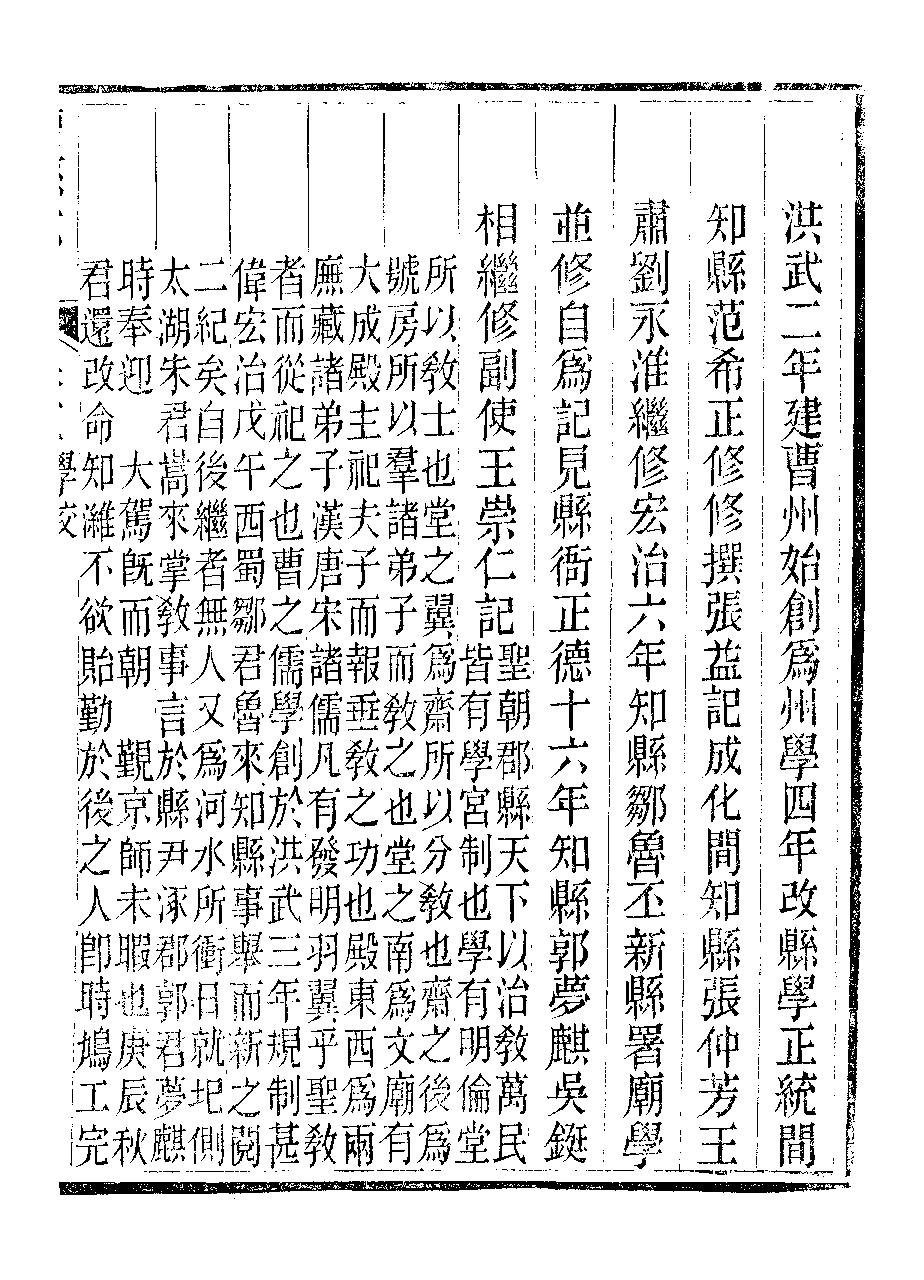 洪武二年建曹州始創爲州學四年改縣學正統間
知縣范希正修修撰張益記成化間知縣張仲芳王
肅劉永淮繼修宏治六年知縣鄒魯丕新縣署廟學
並修自爲記見縣衙正德十六年知縣郭夢麒吳鋋
相繼修副使王崇仁記
聖朝郡縣天下以治敎萬民
皆有學宮制也學有明倫堂
所以敎士也堂之翼爲齋所以分敎也齋之後爲
號房所以羣諸弟子而敎之也堂之南爲文廟有
大成殿主祀夫子而報垂敎之功也殿東西爲兩
廡藏諸弟子漢唐宋諸儒凡有發明羽翼乎聖敎
者而從祀之也曹之儒學創於洪武三年規制甚
偉宏治戊午西蜀鄒君魯來知縣事舉而新之閱
二紀矣自後繼者無人又爲河水所衝日就圯側
太湖朱君嵩來掌敎事言於縣尹涿郡郭君夢麒
時奉迎　大駕旣而朝　覲京師未暇也庚辰秋
君還改命知濰不欲貽勤於後之人卽時鳩工完
學校